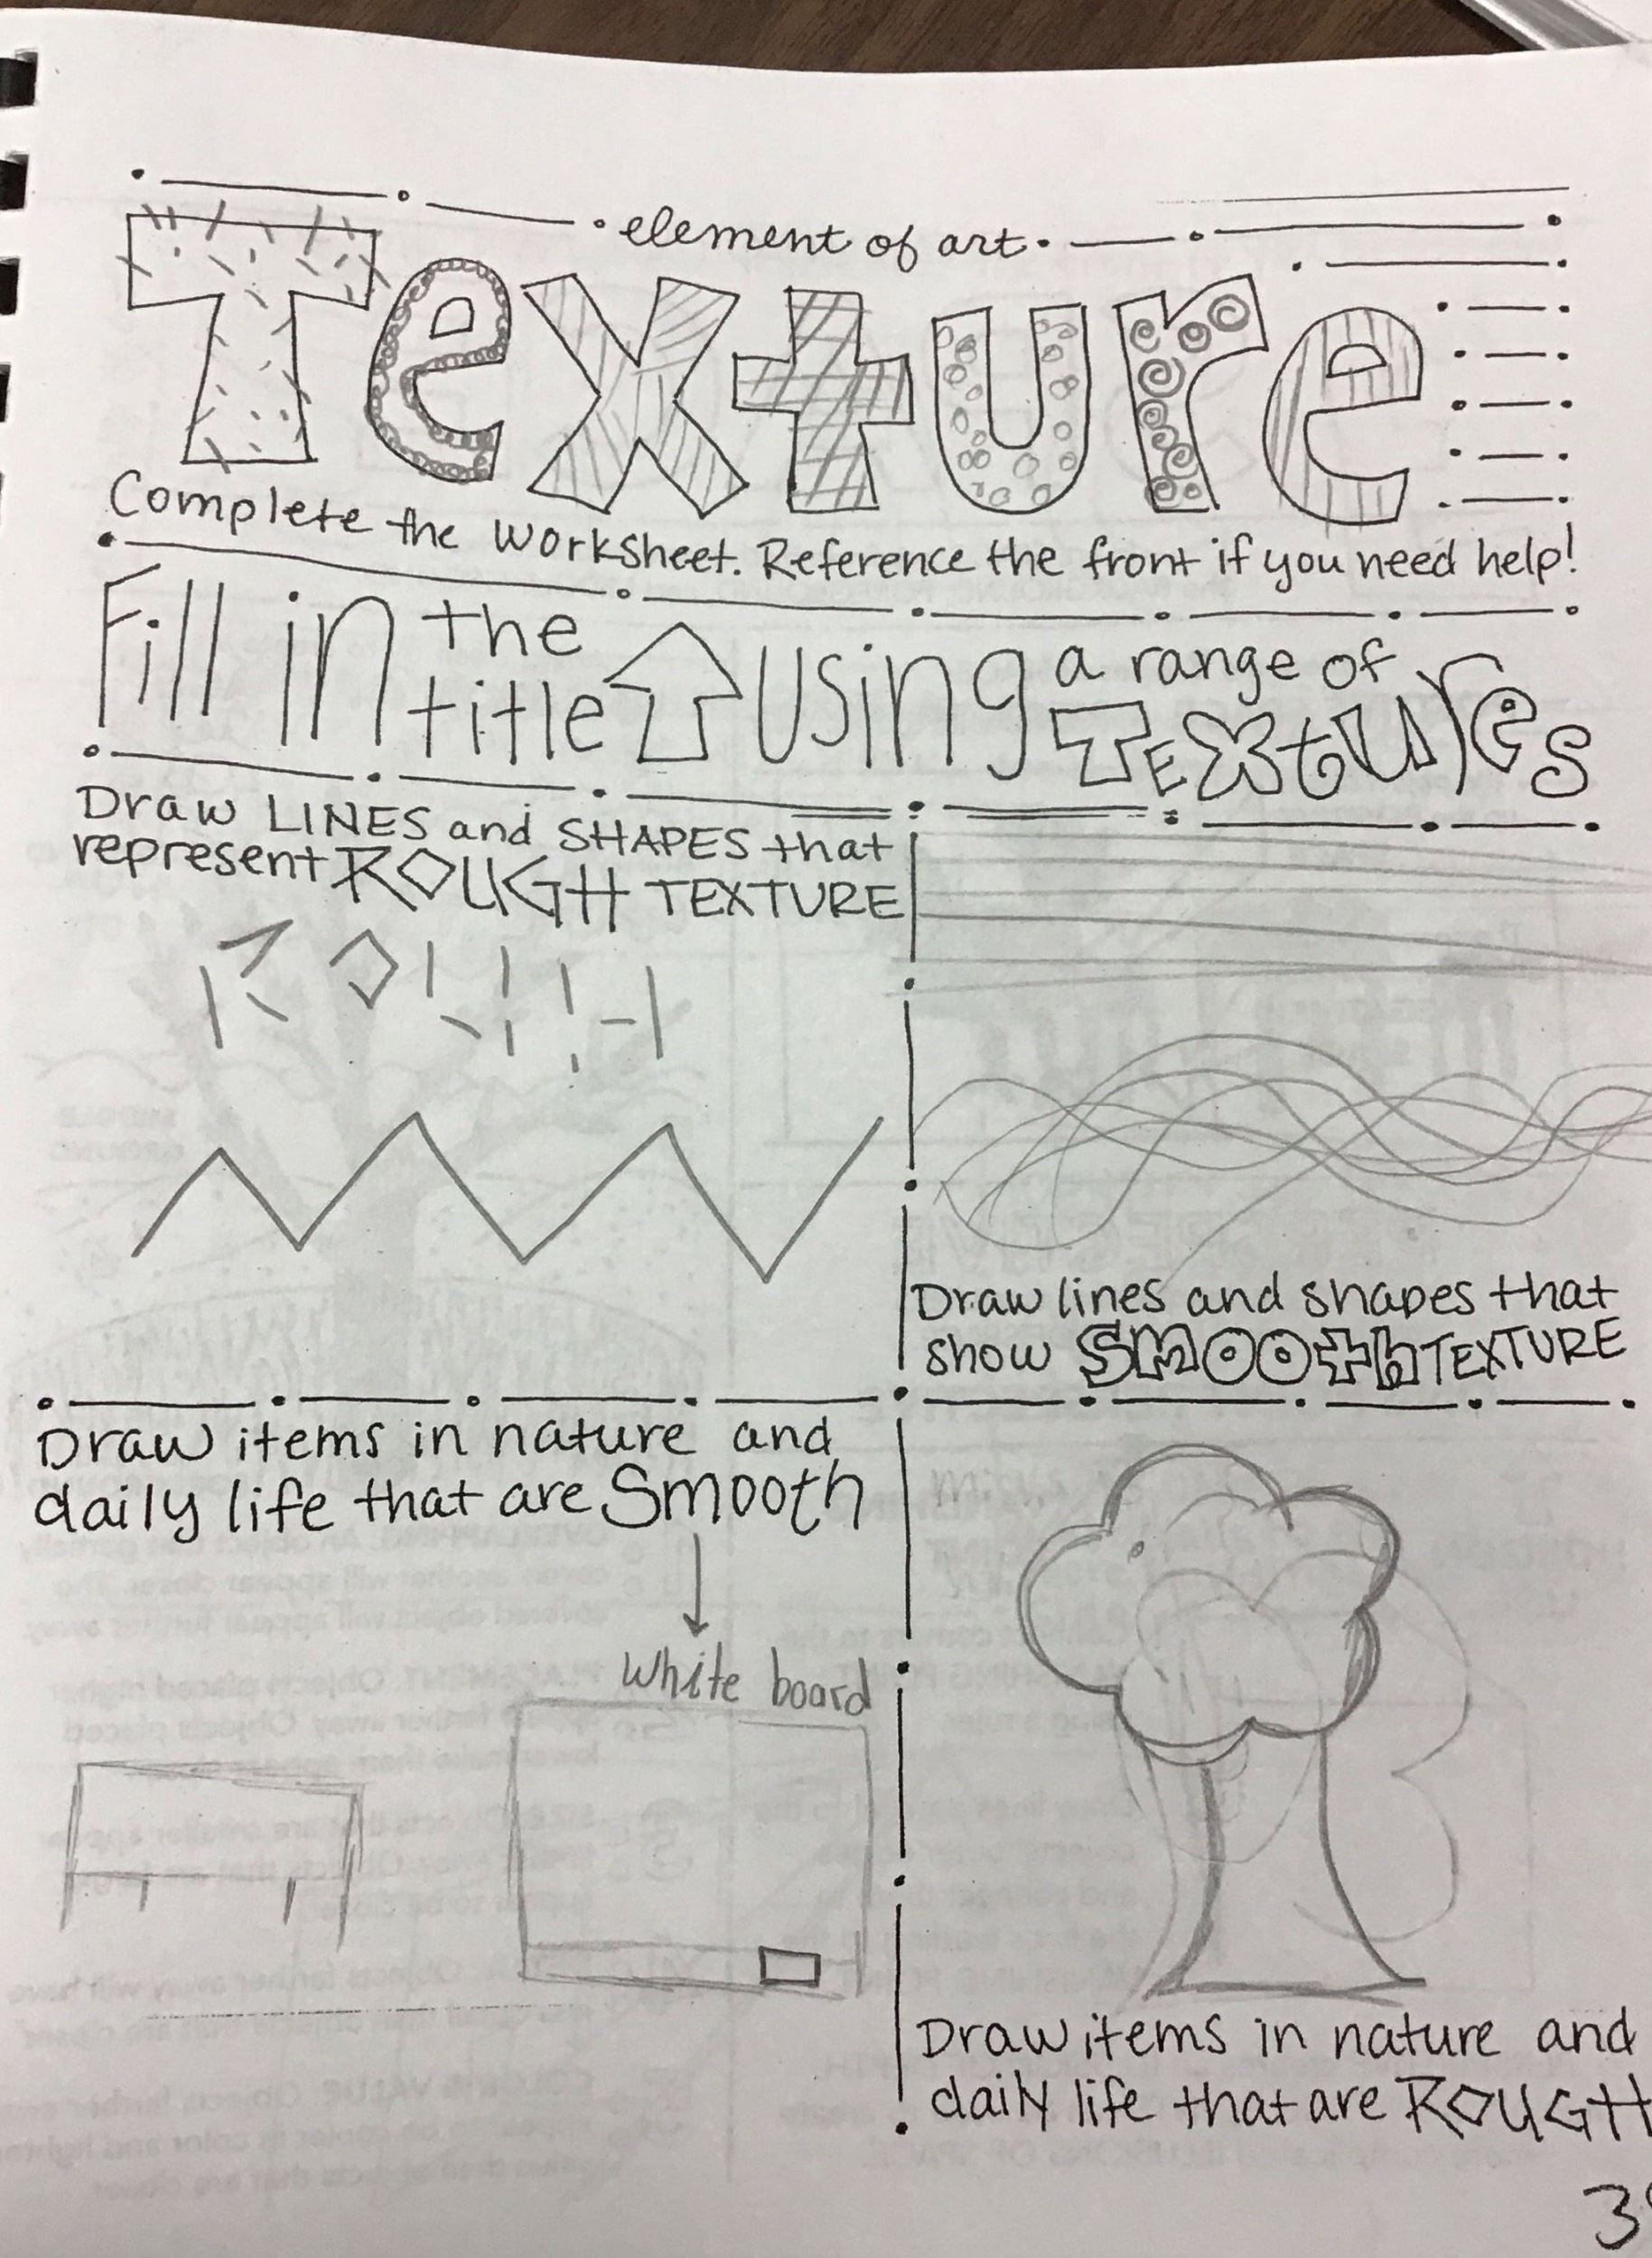 element of art
Texture
Complete the worksheet. Reference the front if you need help!
Fill in the title using a range of TExtures
Draw LINES and SHAPES that
represent ROUGH TEXTURE
Draw lines and shapes that
show SMOOth TEXTURE
Draw items in nature and
daily life that are Smooth
White board
Draw items in nature and
daily life that are ROUGH